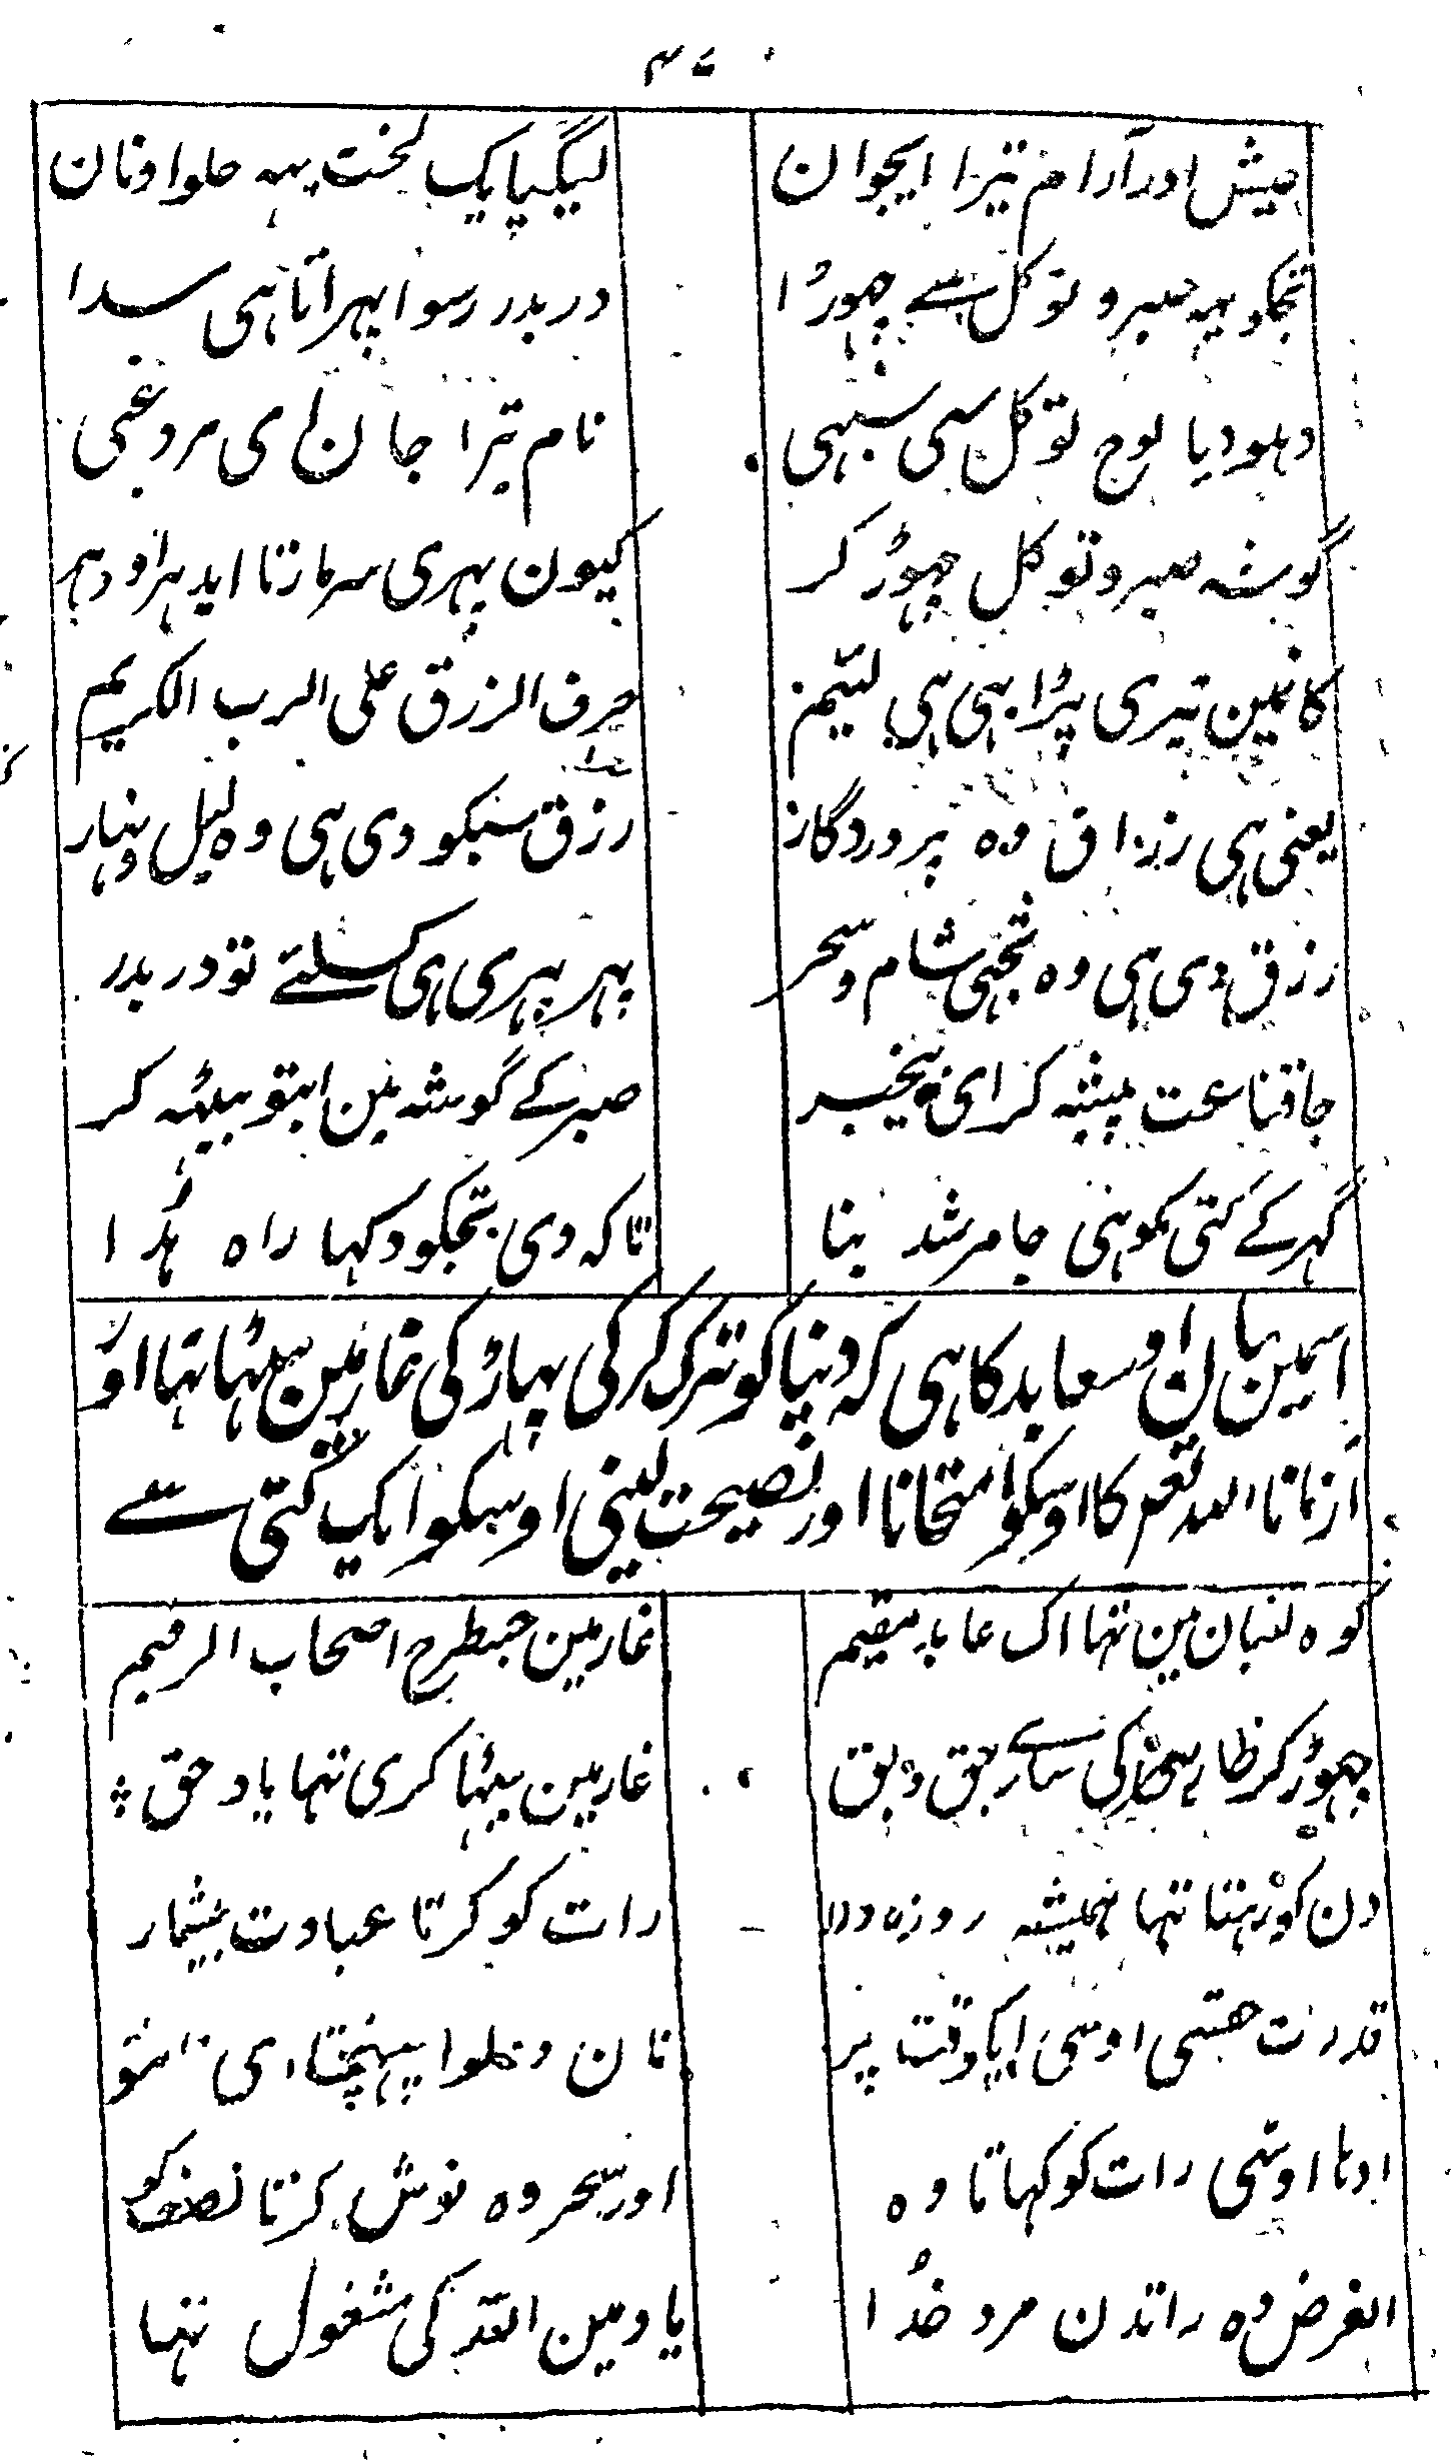 ۴۷
عیش اور آرام تیرا ایجوان
لیگیا یک لخت یہہ حلوا ونان
تجکو یہہ صبر و توکل سے چھوڑا
در بدر رسوا پہراتا ہی سدا
دہلو دیا لوح توکل سی سبہی
نام تیرا جان لی ای مرد غنی
گوشہ صبر و توکل چھوڑ کر
کیون پہری سر مارتا ایدہر اودہر
کانمین تیری پڑا بہی ہی لئیم
حرف الرزق علی الرب الکریم
یعنی ہی رزاق وہ پروردگار
رزق سبکو دی ہی وہ لیل ونہار
رزق دی ہی وہ تجہی شام وسحر
پہر پہری ہی کسلئے تو در بدر
جا قناعت پیشہ کر ای بیخبر
صبر کے گوشہ مین ابتو بیٹہہ کر
گہر کے کتی کوہی جا مرشد بنا
تاکہ دی تجکو دکہا راہ ہُدا
اسمین بیان اوس عابد کا ہی کہ دنیا کو ترک کر کی پہاڑ کی غار مین بیٹہا تہا اور
آزمانا اللہ تعم کا اوسکو امتحانا اور نصیحت لینی اوسکو ایک کتی سے
کوہ لبنان مین تہا اک عابد مقیم
غار مین جسطرح اصحاب الرقیم
چھوڑ کر ظاہر کی سارے جق و بق
غار مین بیٹہا کری تہا یاد حق
دن کو رہتا تہا ہمیشہ روزہ دار
رات کو کرتا عبادت بیشمار
قدرت حق سی اوسی ایکوقت پر
نان و حلوا پہنچتا
ادہا اوسمی رات کو کہاتا وہ
اور سحر وہ نوش کرتا نصف کو
الغرض وہ راتدن مرد خدا
یاد مین اللہ کی مشغول تہا